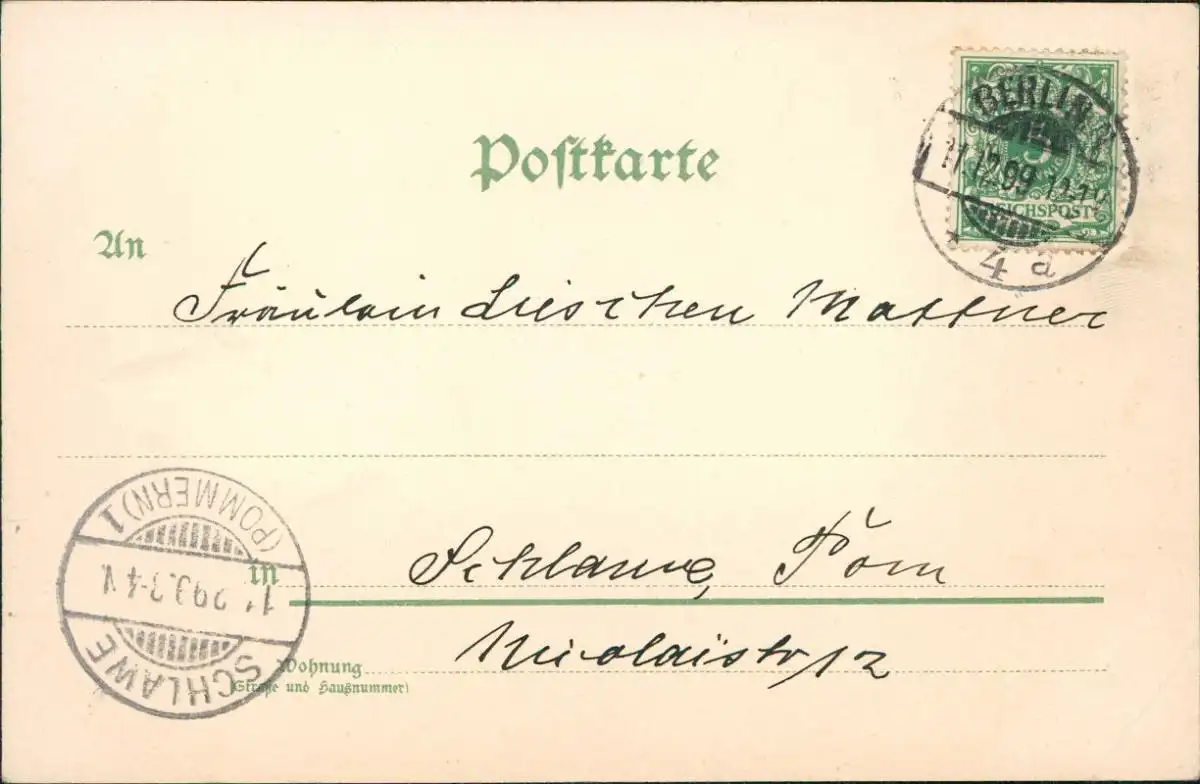 Postkarte
BERLIN
11.12.99
4 a
REICHSPOST
An
Fräulein Lieschen Mattner
in
Schlawe, Pom
Wohnung
(Straße und Hausnummer)
Nicolaistr 12
SCHLAWE
(POMMERN) 1